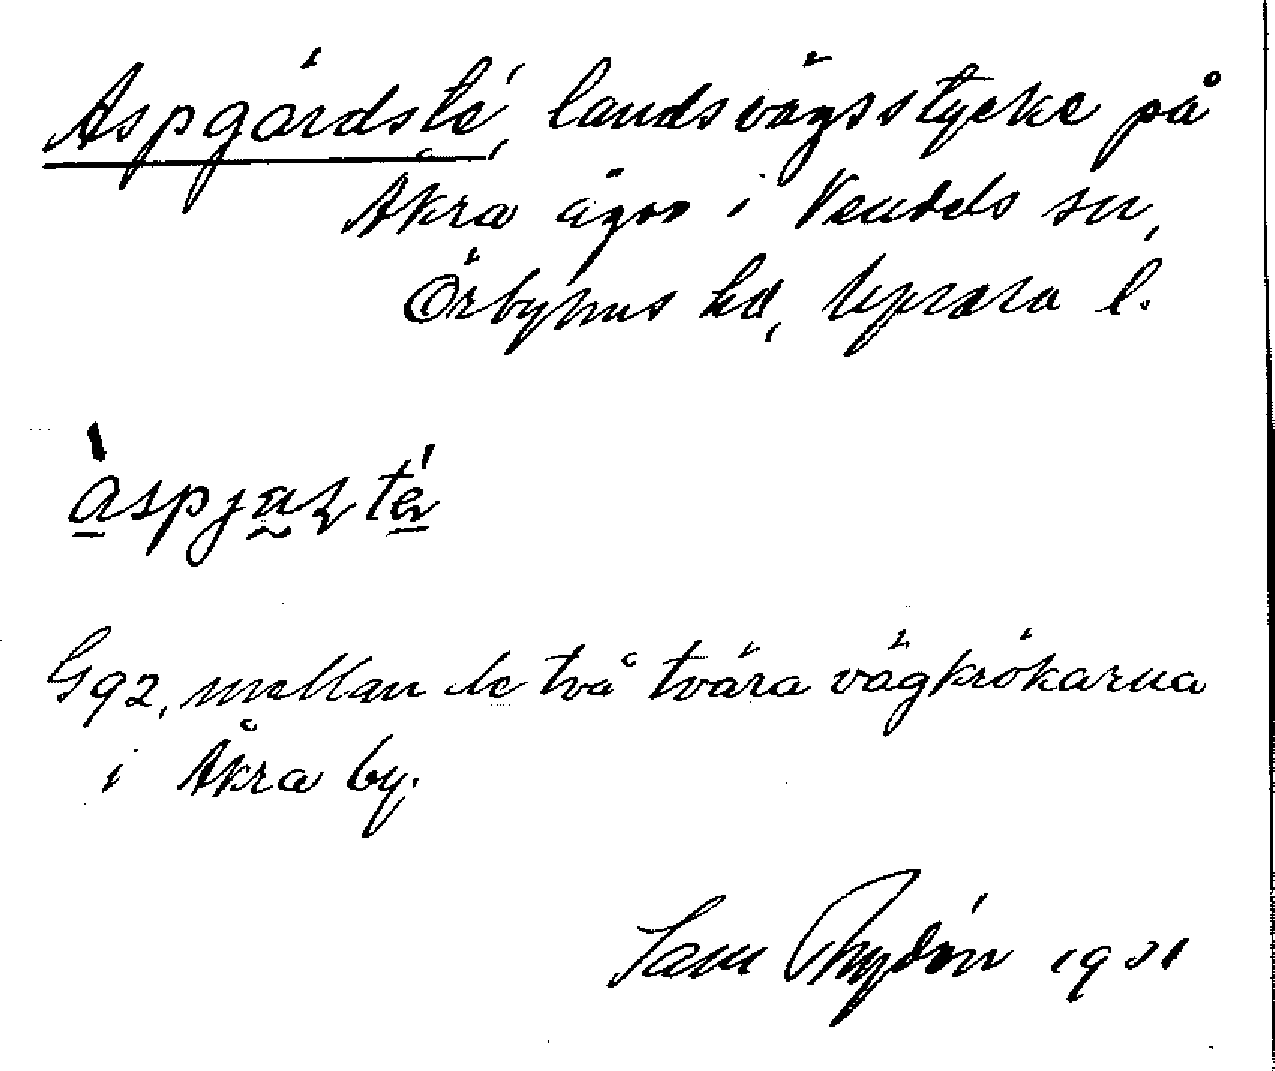 Aspgårdsté, landsvägsstycke på
Åkra ägor i Vendels sn,
Örbyhus hd, Uppsala l.
Gq2, mellan de två tvära vägkrökarna
i Åkra by.
Sam Rydén